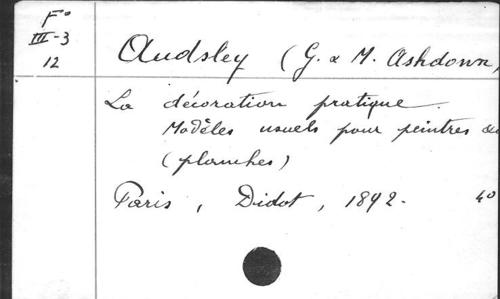 F°
III-3
12
Audsley (G. & M. Ashdown,
La décoration pratique.
Modèles usuels pour peintres
(planches)
Paris, Didot, 1892. 4°